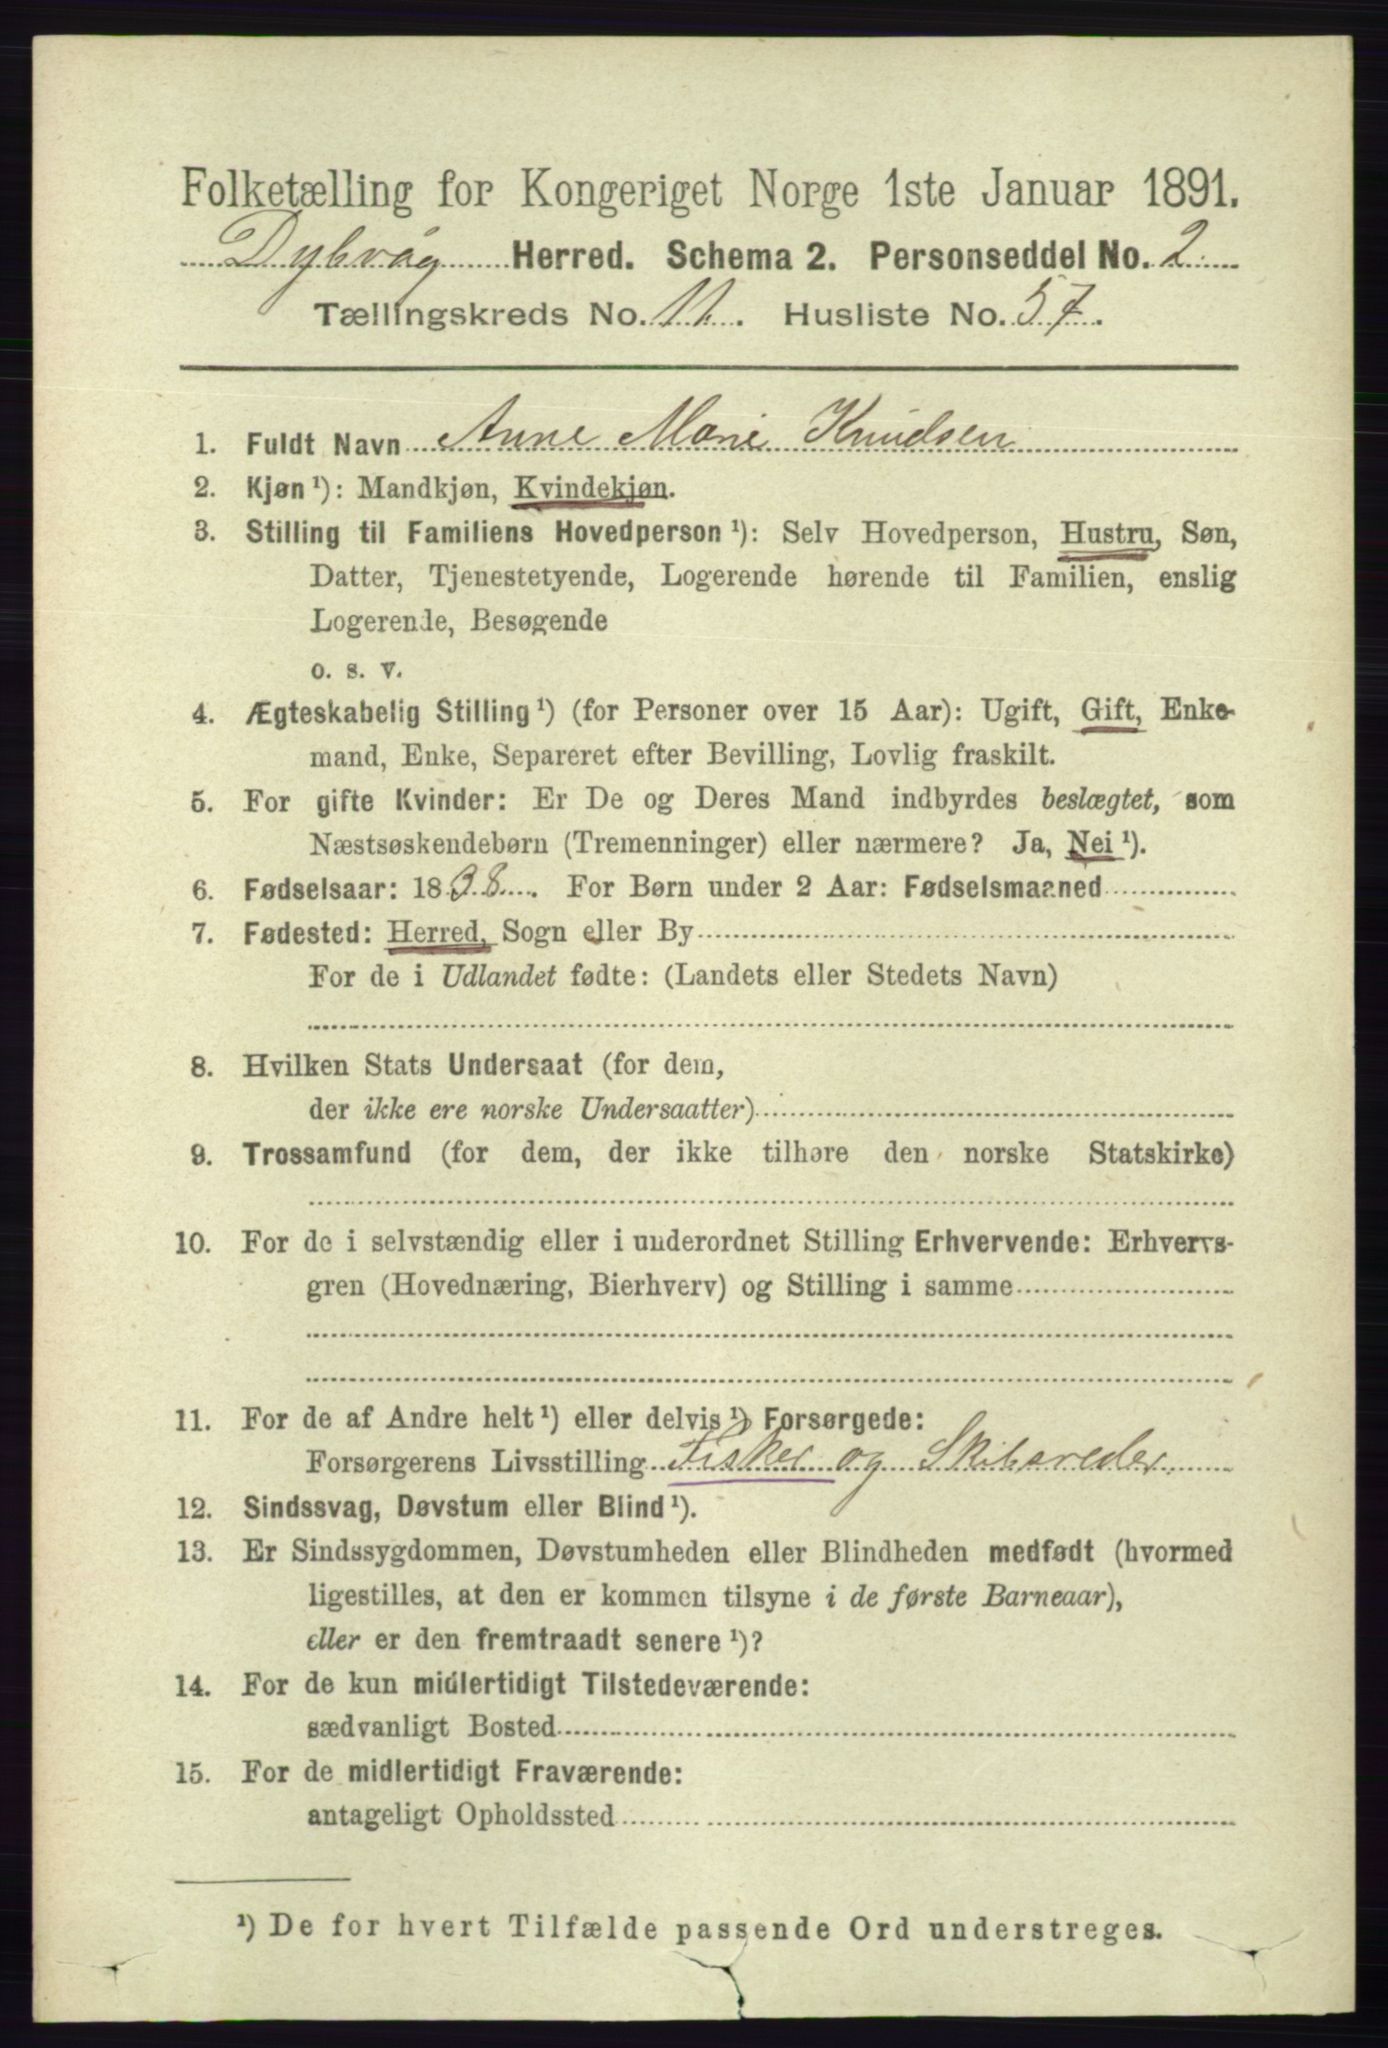 Folketælling for Kongeriget Norge 1ste Januar 1891.
Dybvåg Herred. Schema 2. Personseddel No. 2
Tællingskreds No. 11. Husliste No. 57.
1. Fuldt Navn Anne Marie Knudsen
2. Kjøn ¹): Mandkjøn, Kvindekjøn.
3. Stilling til Familiens Hovedperson ¹): Selv Hovedperson, Hustru, Søn,
Datter, Tjenestetyende, Logerende hørende til Familien, enslig
Logerende, Besøgende
o. s. v.
4. Ægteskabelig Stilling ¹) (for Personer over 15 Aar): Ugift, Gift, Enke-
mand, Enke, Separeret efter Bevilling, Lovlig fraskilt.
5. For gifte Kvinder: Er De og Deres Mand indbyrdes beslægtet, som
Næstsøskendebørn (Tremenninger) eller nærmere? Ja, Nei ¹).
6. Fødselsaar: 1838. For Børn under 2 Aar: Fødselsmaaned
7. Fødested: Herred, Sogn eller By
For de i Udlandet fødte: (Landets eller Stedets Navn)
8. Hvilken Stats Undersaat (for dem,
der ikke ere norske Undersaatter)
9. Trossamfund (for dem, der ikke tilhøre den norske Statskirke)
10. For de i selvstændig eller i underordnet Stilling Erhvervende: Erhvervs-
gren (Hovednæring, Bierhverv) og Stilling i samme
11. For de af Andre helt ¹) eller delvis ¹) Forsørgede:
Forsørgerens Livsstilling Fisker og Skibsreder
12. Sindssvag, Døvstum eller Blind ¹).
13. Er Sindssygdommen, Døvstumheden eller Blindheden medfødt (hvormed
ligestilles, at den er kommen tilsyne i de første Barneaar),
eller er den fremtraadt senere ¹)?
14. For de kun midlertidigt Tilstedeværende:
sædvanligt Bosted
15. For de midlertidigt Fraværende:
antageligt Opholdssted
¹) De for hvert Tilfælde passende Ord understreges.